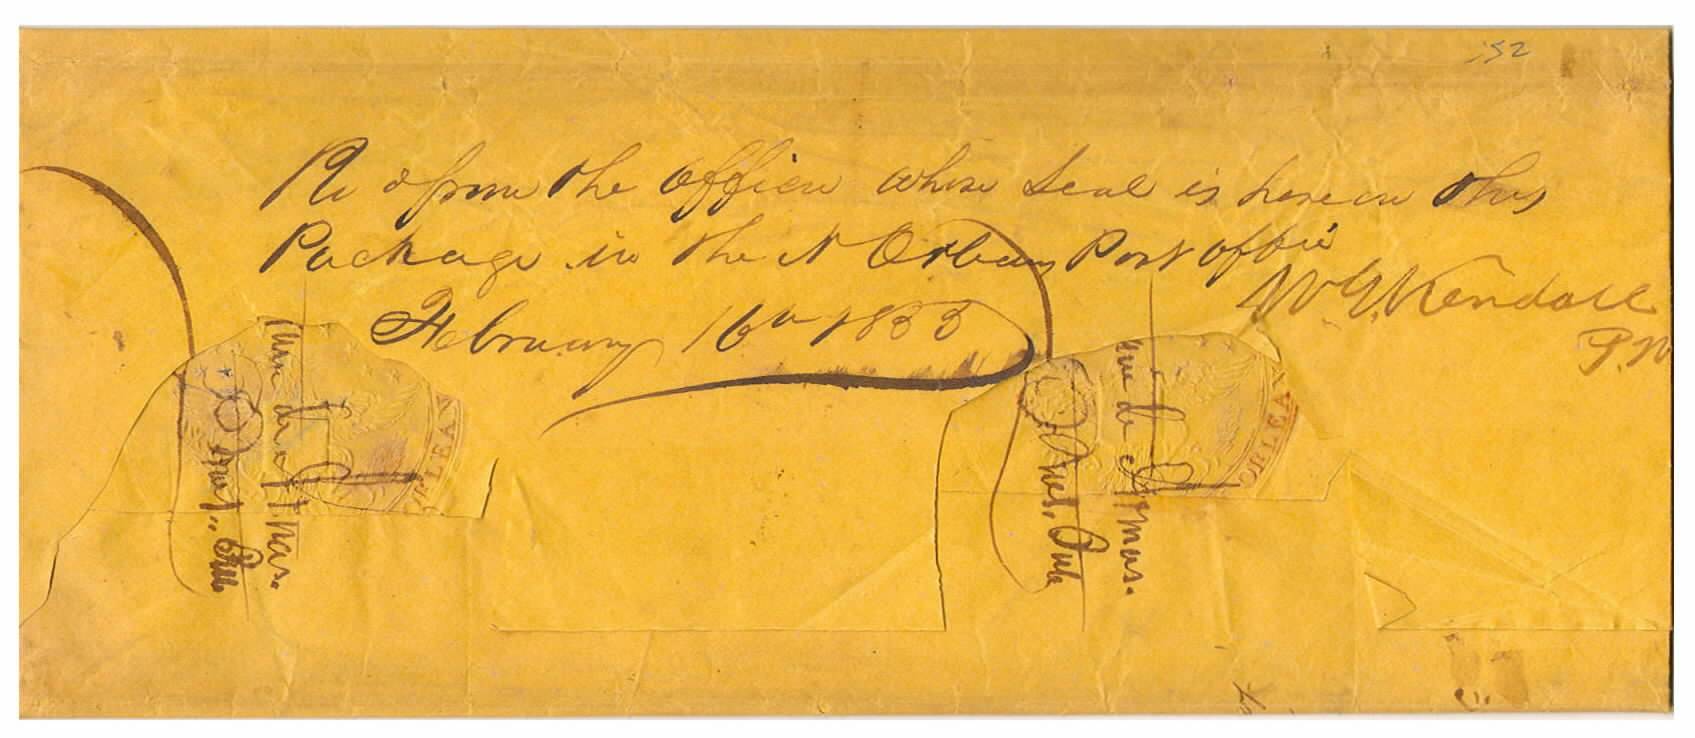 52
Re d from the Officer whose Seal is hereon this
Package in the N Orleans Post office
February 16th 1853
W G Kendall
P.M
RLEAN
ORLEAN
de Armas.
de Armas.